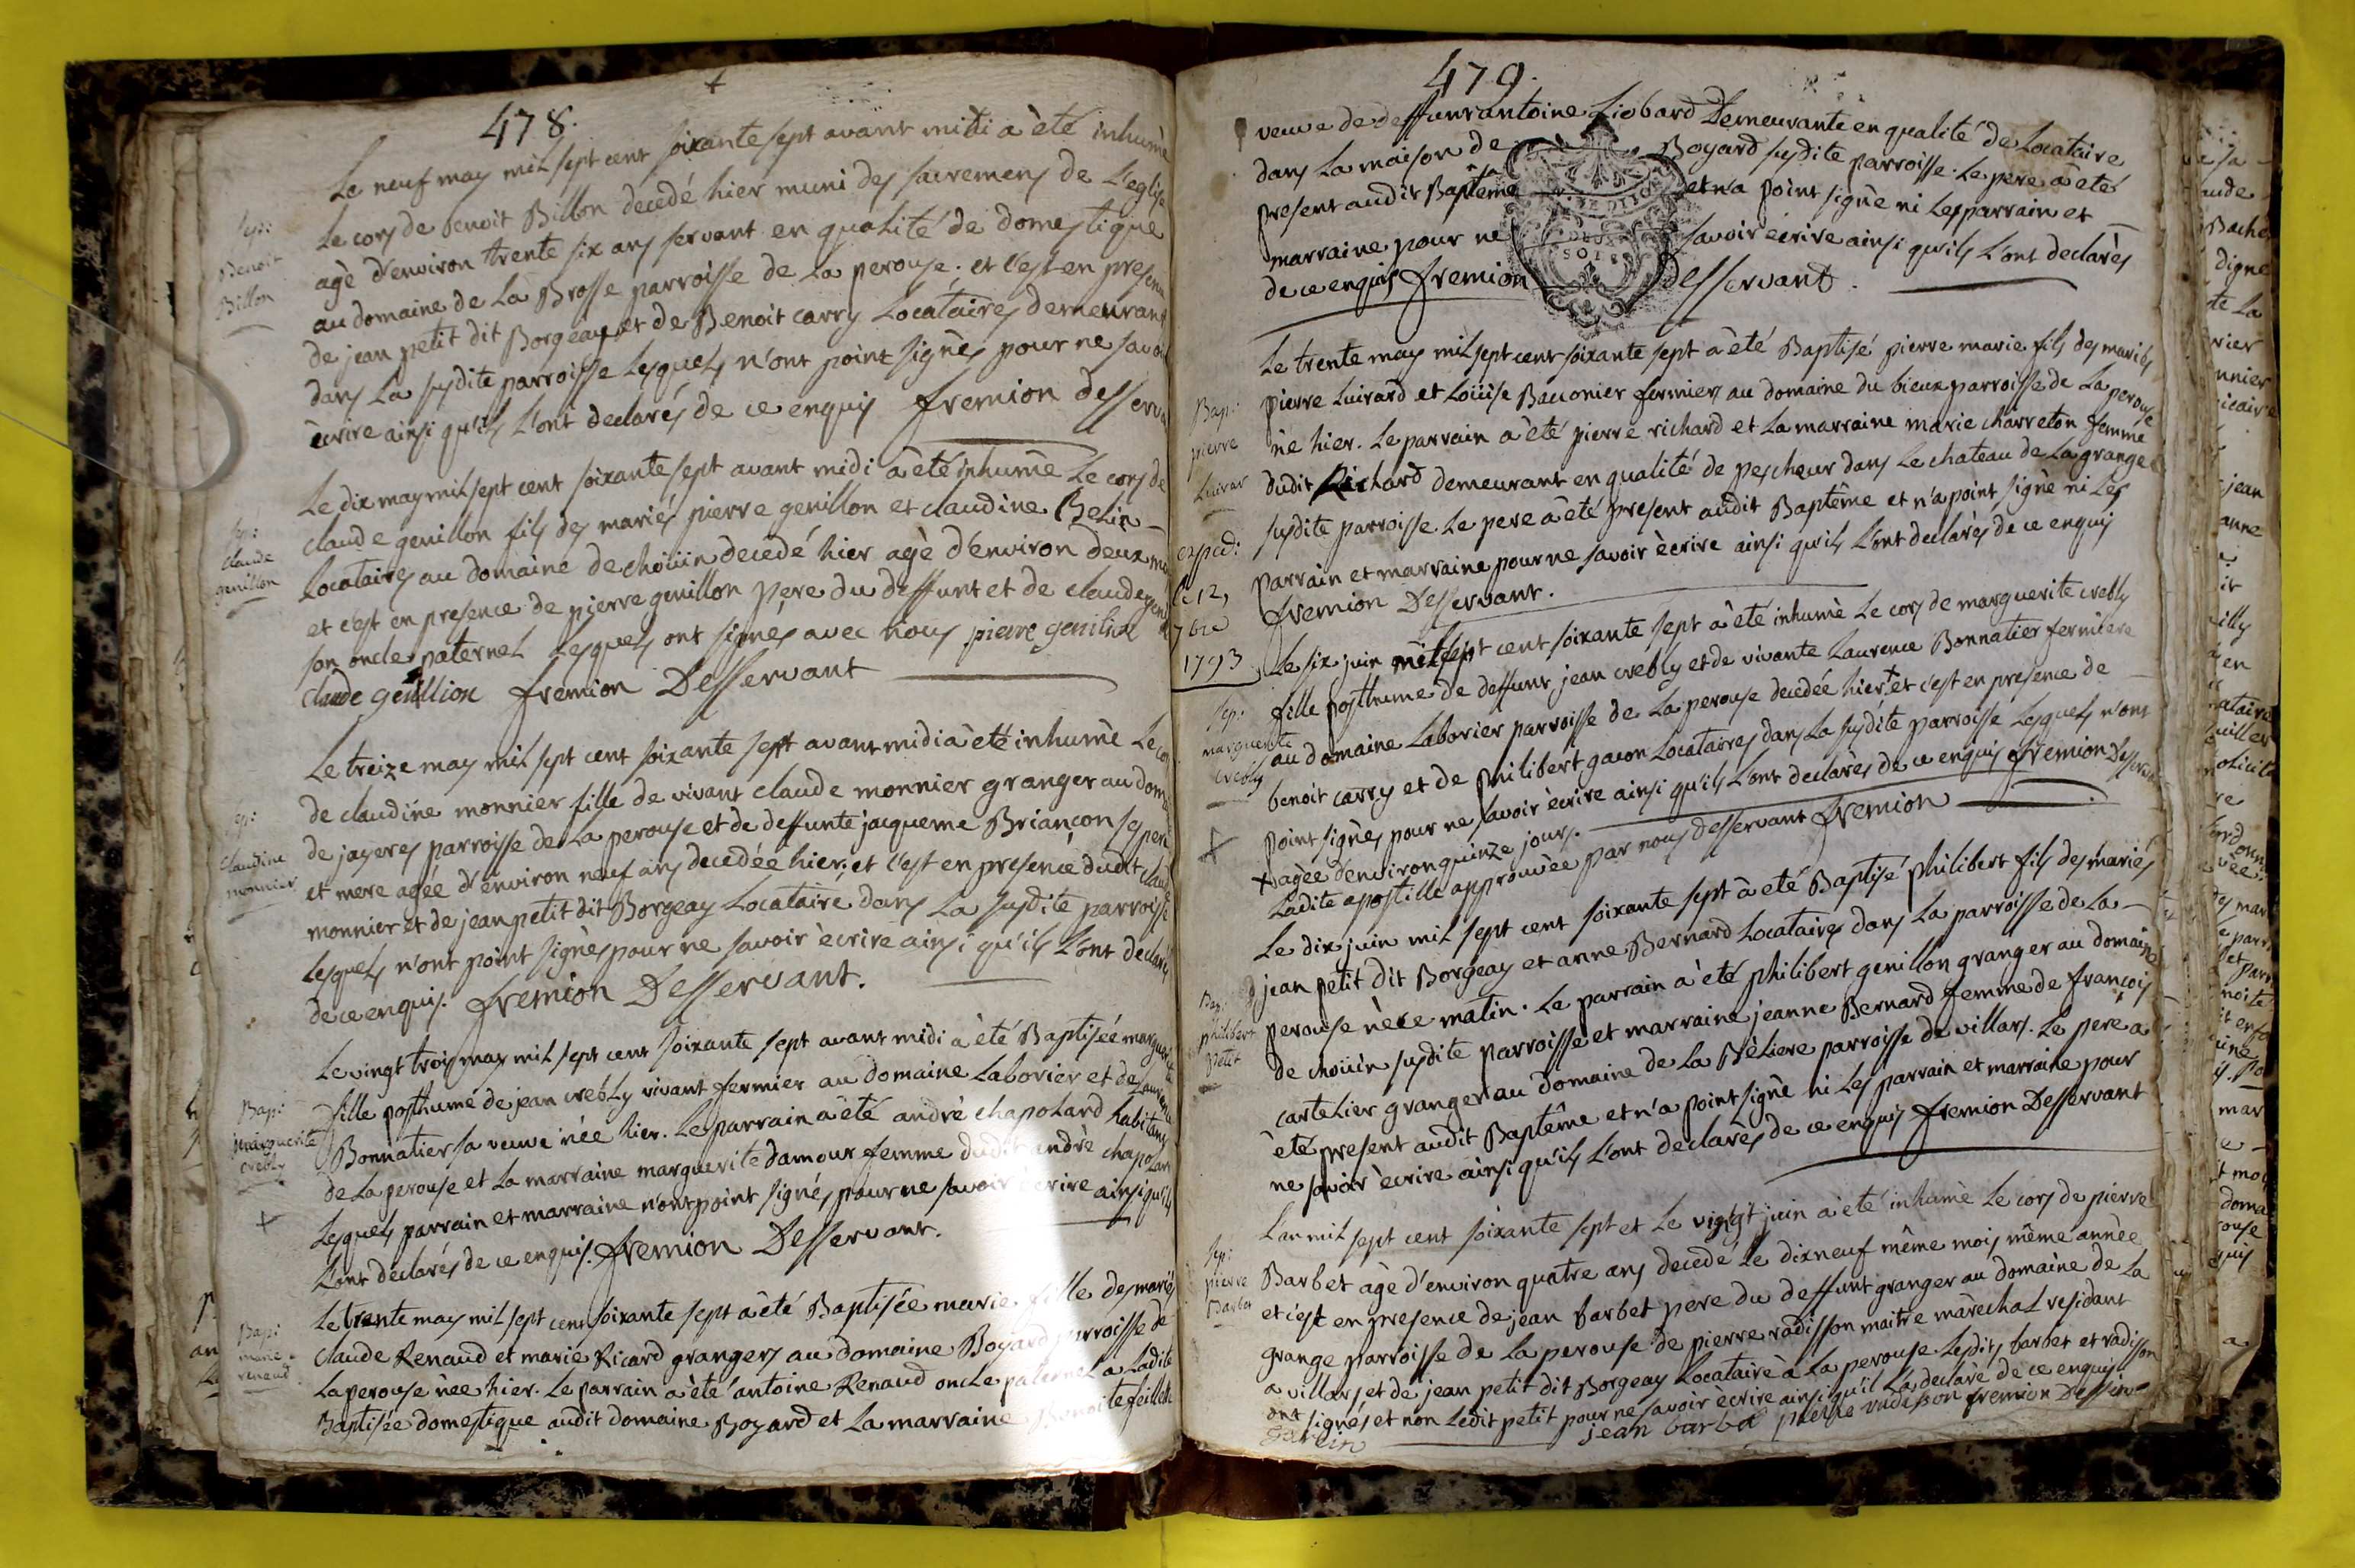 478.
Sep:
Benoit
Billon
Le neuf may mil sept cent soixante sept avant midi a èté inhumè
Le cors de benoit Billon decedé hier muni des sacremens de L'eglise
agè d'environ trente six ans servant en qualité de domestique
au domaine de La Brosse parroisse de La perouse. et c'est en presence
de jean petit dit Borgeay et de Benoit carry Locataires demeurans
dans La susdite parroisse Lesquels n'ont point signès pour ne savoir
ècrire ainsi qu'ils L'ont declarés de ce enquis fremion desserva
Sep:
claude
genillon
Le dix may mil sept cent soixante sept avant midi a èté inhumè Le cors de
claude genillon fils des mariés pierre genillon et claudine Belin
Locataires au domaine de choüin decedé hier agè d'environ deux
et c'est en presence de pierre genillon pere du deffunt et de claude
son oncle paternel Lesquels ont signès avec nous pierre genilion
claude genillion fremion Desservant
Sep:
claudine
monnier
Le treize may mil sept cent soixante sept avant midi a èté inhumè Le
de claudine monnier fille de vivant claude monnier granger au
de jayeres parroisse de La perouse et de deffunte jacqueme Briançon ses pere
et mere agée d'environ neuf ans decedée hier; et c'est en presence dudit claude
monnier et de jean petit dit Borgeay Locataire dans La susdite parroisse
Lesquels n'ont point signès pour ne savoir ècrire ainsi qu'ils L'ont declarés
de ce enquis. fremion Desservant.
Bap:
marguerite
crebly
+
Le vingt trois may mil sept cent soixante sept avant midi a èté Baptisée marguerite
fille posthume de jean crebly vivant fermier au domaine Laborier et de Laurence
Bonnatier sa veuve née hier. Le parrain a èté andrè chapolard habitans
de La perouse et La marraine marguerite damour femme dudit andrè chapolard
Lesquels parrain et marraine n'ont point signés pour ne savoir ècrire ainsi qu'ils
L'ont declarés de ce enquis. fremion Desservant.
Bap:
marie
renaud
Le trente may mil sept cent soixante sept a èté Baptisée marie fille des mariés
claude Renaud et marie Ricard grangers au domaine Boyard parroisse de
La perouse nèe hier. Le parrain a èté antoine Renaud oncle paternel a Ladite
Baptisée domestique audit domaine Boyard et La marraine Benoite feillet
479.
veuve de deffunt antoine Liobard Demeurante en qualité de Locataire
dans La maison de Boyard susdite parroisse. Le pere a èté
present audit Baptème et n'a point signè ni Les parrain et
marraine pour ne savoir ècrire ainsi qu'ils L'ont declarés
de ce enquis fremion Desservant.
Bap:
pierre
Luirar
Le trente may mil sept cent soixante sept a èté Baptisé pierre marie fils des mariés
pierre Luirard et Loüise Bauonier fermiers au domaine du bieux parroisse de La perouse
nè hier. Le parrain a èté pierre richard et La marraine marie charreton femme
dudit Richard demeurant en qualité de pescheur dans Le chateau de La grange
susdite parroisse. Le pere a èté present audit Baptême et n'a point signè ni Les
parrain et marraine pour ne savoir ècrire ainsi qu'ils L'ont declarés de ce enquis
fremion Desservant.
exped:
le 12,
7bre
1793
Sep:
marguerite
crebly
+
Le six juin mil sept cent soixante sept a èté inhumè Le cors de marguerite crebly
fille posthume de deffunt jean crebly et de vivante Laurence Bonnatier fermiere
au domaine Laborier parroisse de La perouse decedée hier + et c'est en presence de
benoit carry et de philibert gacon Locataires dans La susdite parroisse Lesquels n'ont
point signès pour ne savoir ècrire ainsi qu'ils L'ont declarés de ce enquis fremion Desserva
+ agée d'environ quinze jours.
Ladite apostille approuvèe par nous desservant fremion
Bap:
philibert
petit
Le dix juin mil sept cent soixante sept a èté Baptisé philibert fils des mariés
jean petit dit Borgeay et anne Bernard Locataires dans La parroisse de La
perouse nè ce matin. Le parrain a èté philibert genillon granger au domaine
de choüin susdite parroisse et marraine jeanne Bernard femme de françois
cartelier granger au domaine de La Brèliere parroisse de villars. Le pere a
èté present audit Baptême et n'a point signè ni Les parrain et marraine pour
ne savoir ècrire ainsi qu'ils L'ont declarès de ce enquis fremion Desservant
Sep:
pierre
Barbet
L'an mil sept cent soixante sept et Le vingt juin a èté inhumè Le cors de pierre
Barbet âgè d'environ quatre ans decedé Le dixneuf même mois même annèe
et c'est en presence de jean barbet pere du deffunt granger au domaine de La
grange parroisse de La perouse de pierre radisson maitre marèchal residant
a villars et de jean petit dit Borgeay Locataire à La perouse. Lesdits barbet et radisson
ont signés et non Ledit petit pour ne savoir ècrire ainsi qu'il L'a declarè de ce enquis
jean barbet pierre radisson fremion Desserva